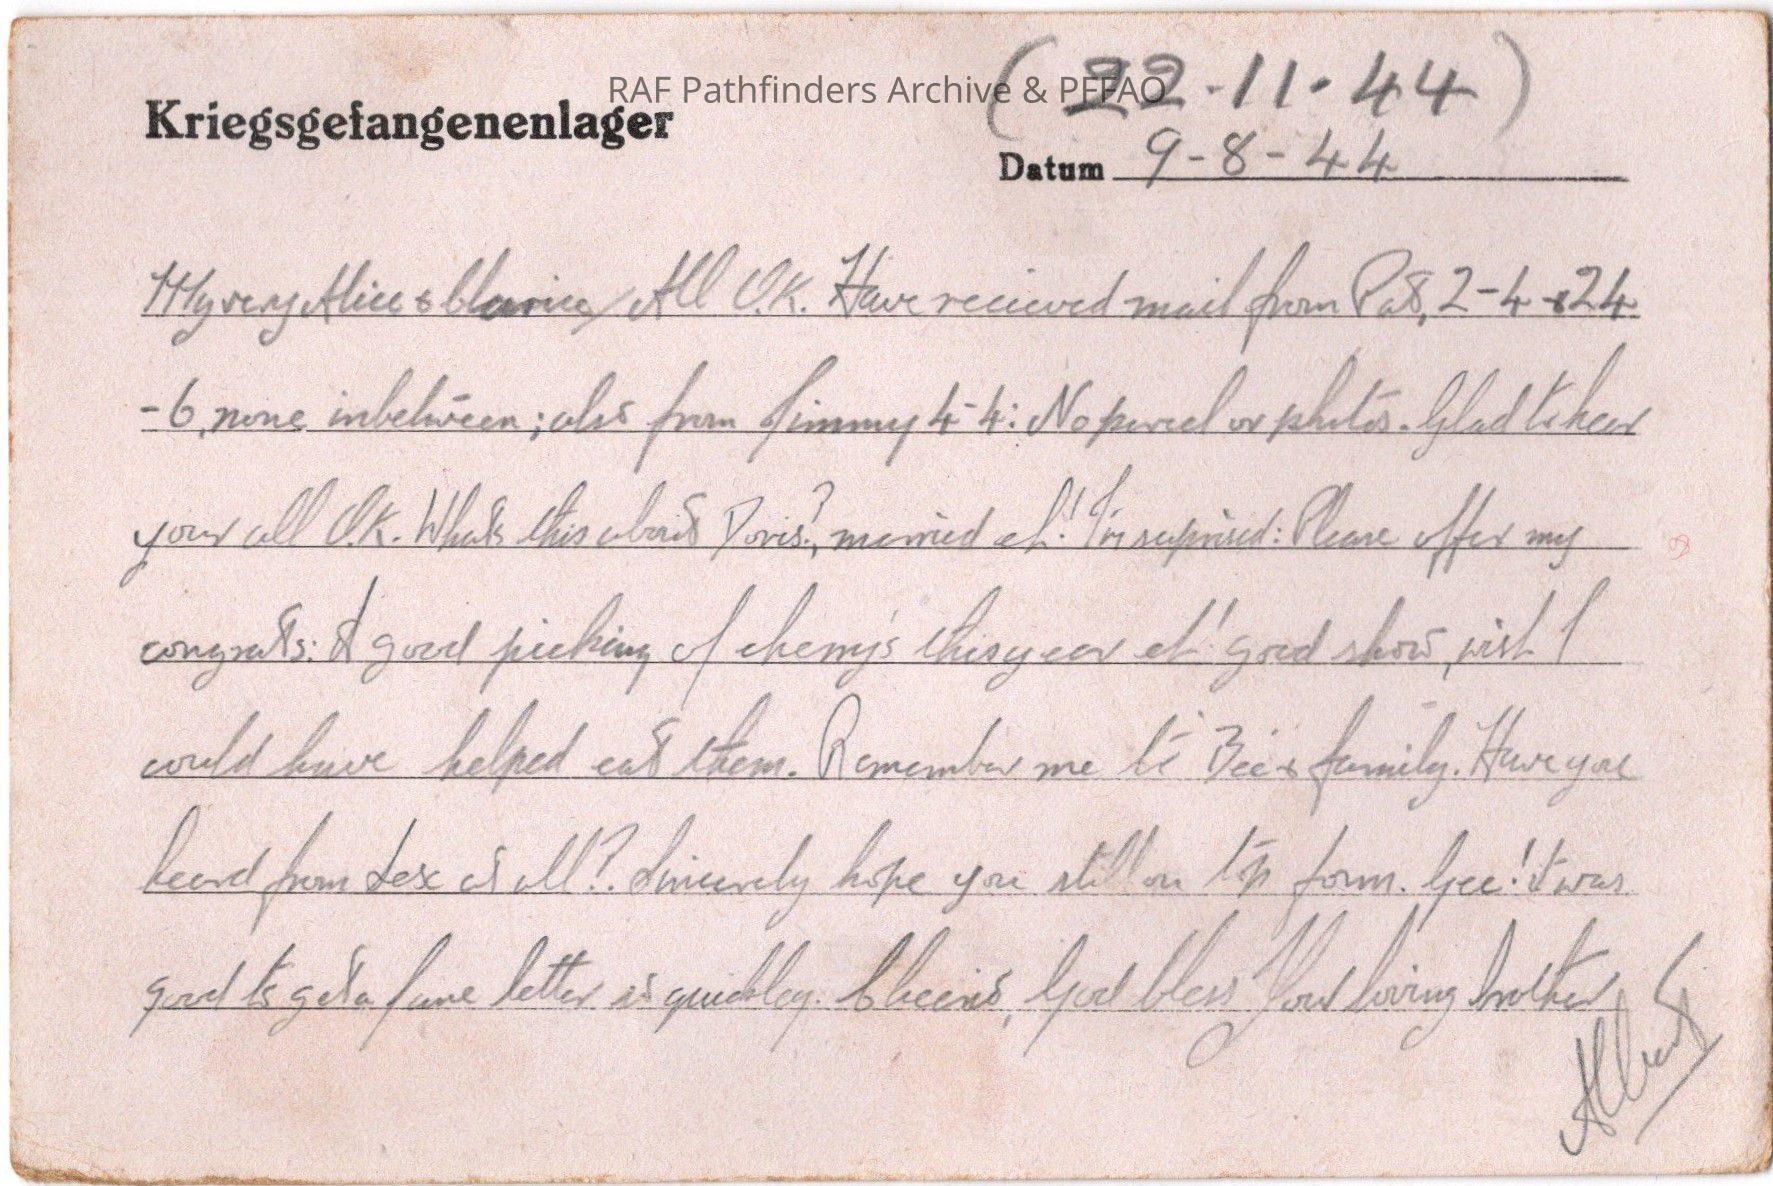 RAF Pathfinders Archive & PFFAO
(22-11-44)
Kriegsgefangenenlager
Datum 9-8-44
My very Alice & Clarice/ All O.K. Have recieved mail from Pat, 2-4 & 24
-6, none inbetween; also from Jimmy 4-4: No parcel or photos. Glad to hear
your all O.K. Whats this about Doris?, married eh! I'm suprised: Please offer my
congrats: A good picking of cherry's this year eh! good show, wish I
could have helped eat them. Remember me to Bee & family. Have you
heard from Lex at all? Sincerely hope you still on top form. Gee! it was
good to get a June letter so quickley. Cheerio, God bless Your loving brother
Albert